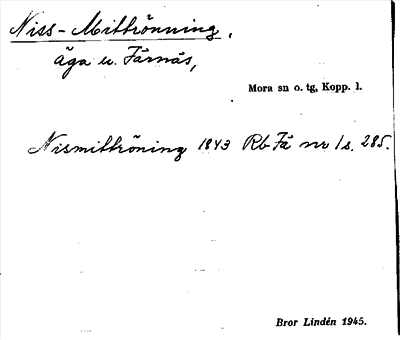 Niss-Mittrönning,
äga u. Färnäs,
Mora sn o. tg, Kopp. l.
Nismittröning 1843 Rb Fä nr 1 s. 285.
Bror Lindén 1945.